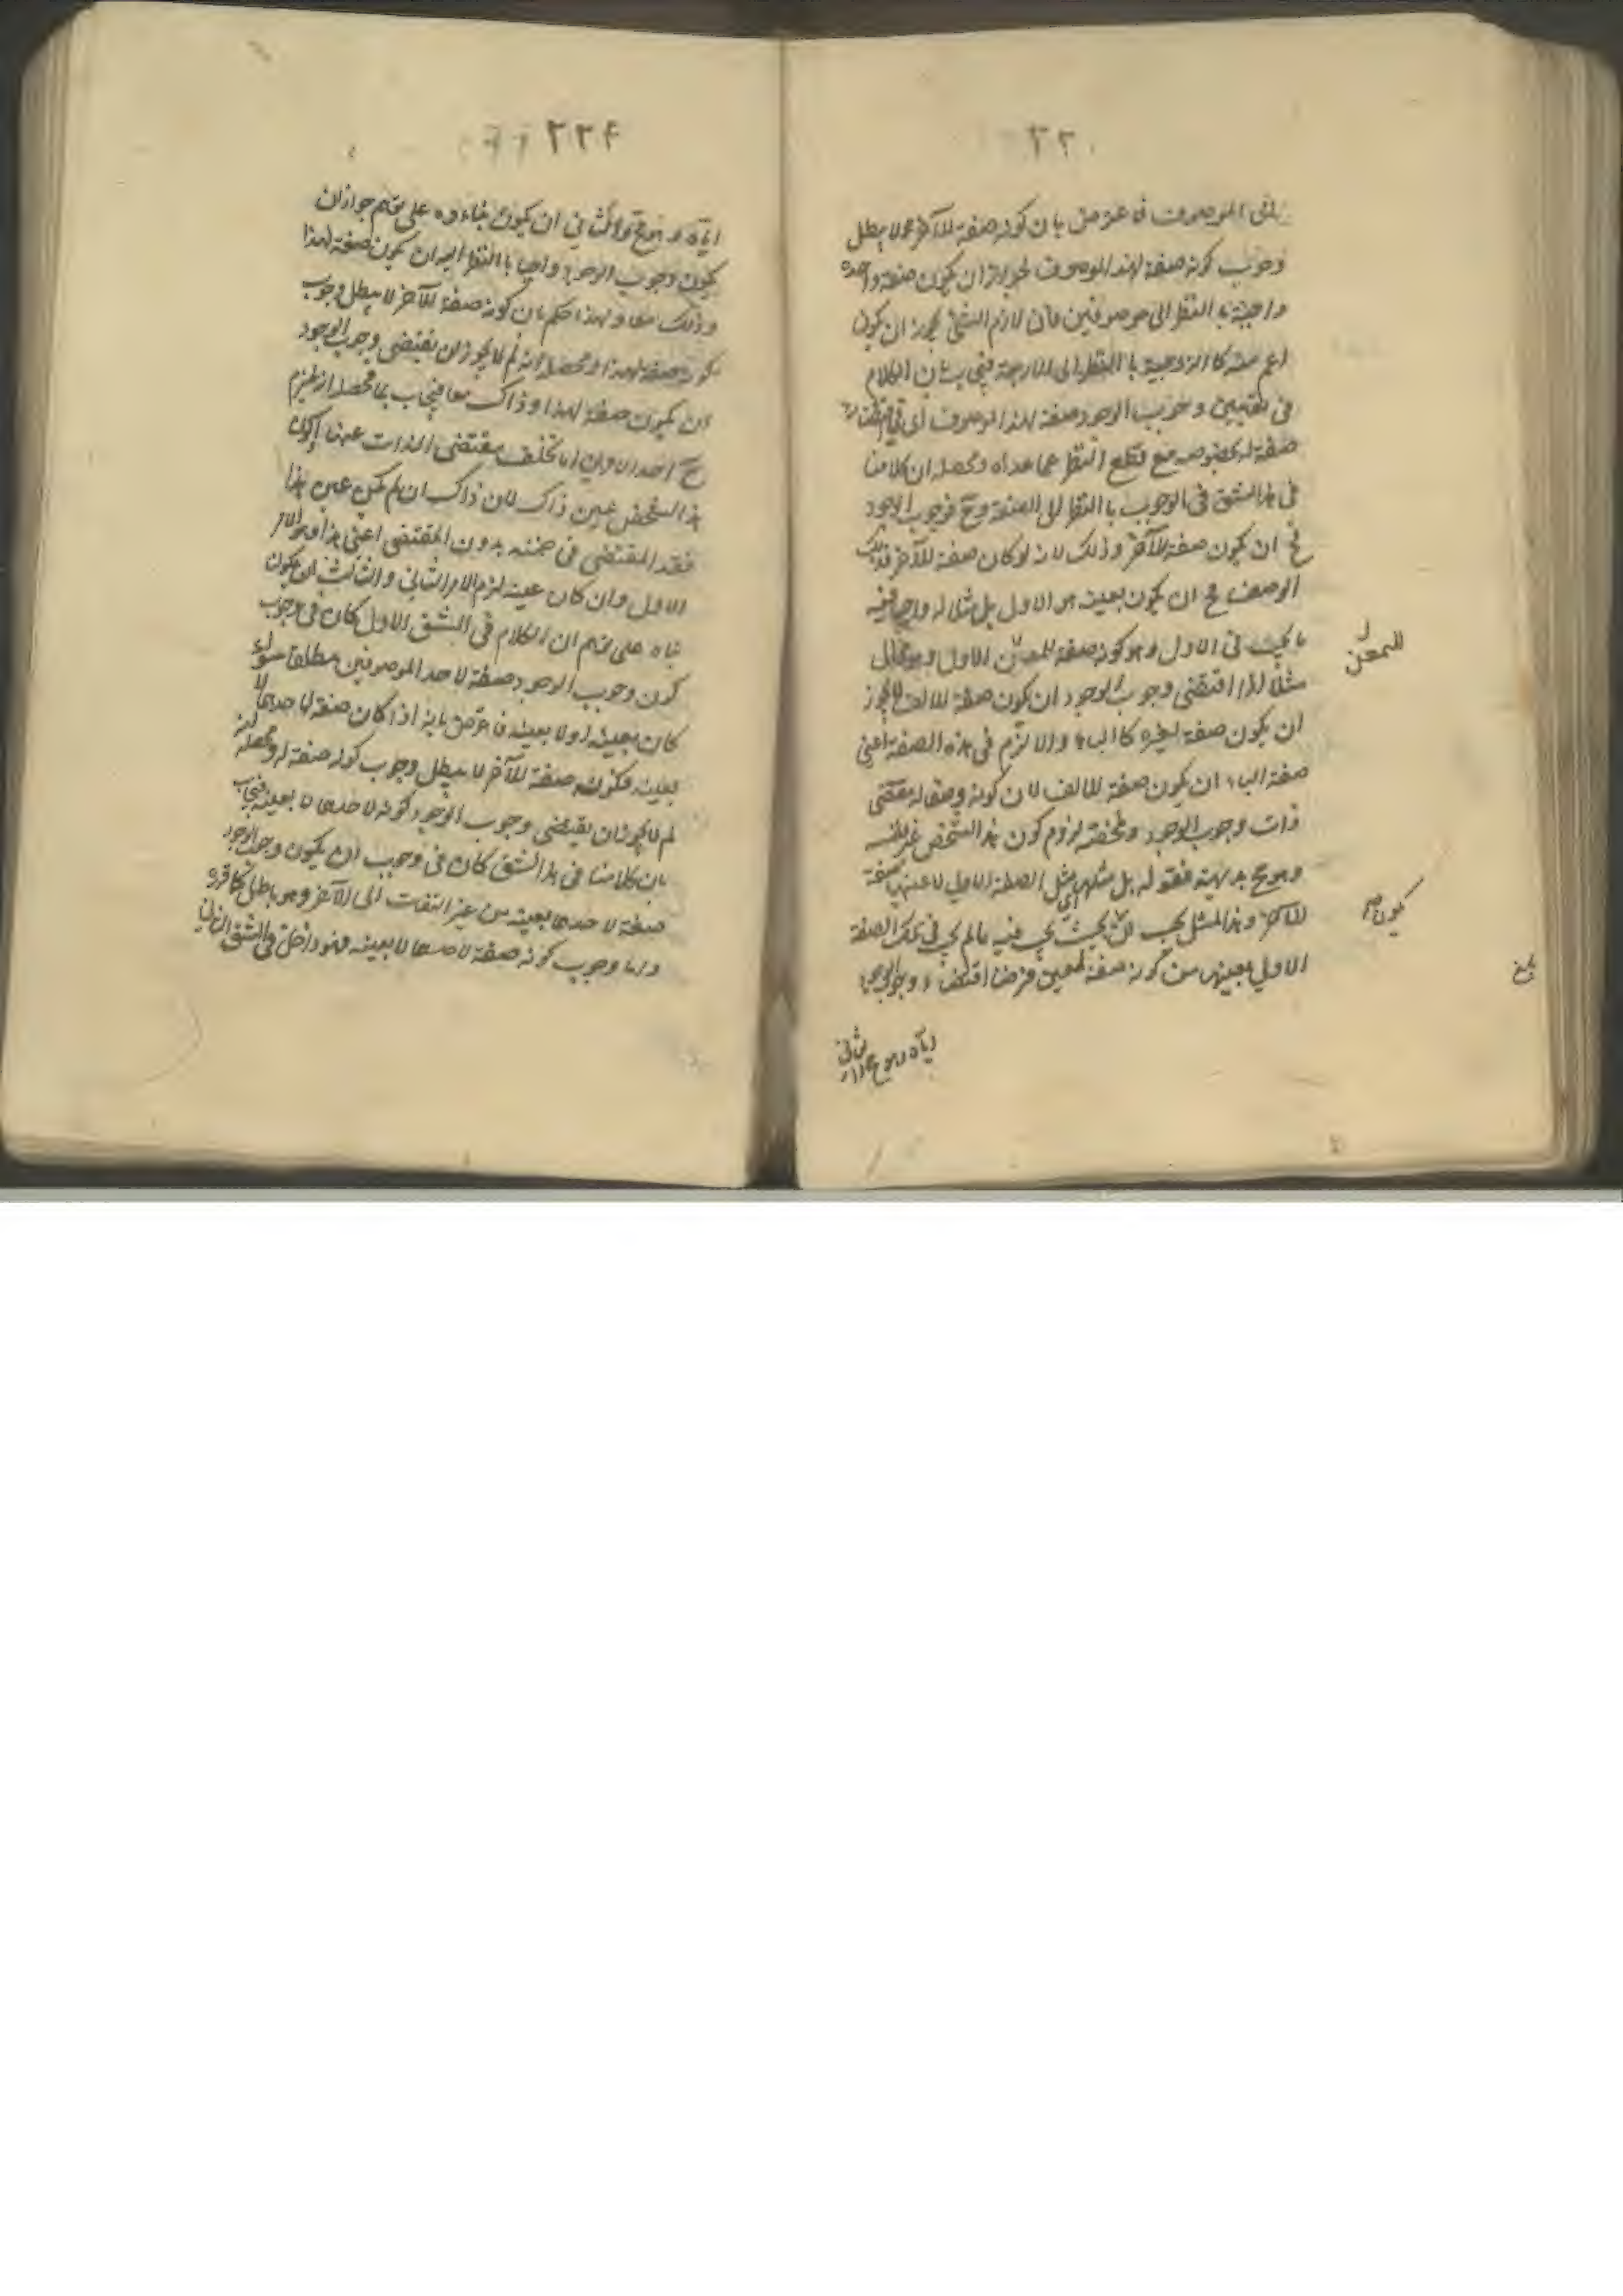 الى الموصوف فاعترض بان كونه صفة للآخر لا يبطل
وجوب كونه صفة لهذا الموصوف لجواز ان يكون صفة واحدة
واجبة بالنظر الى موصوفين فان لازم الشئ يجوز ان يكون
اعم منه كالزوجية بالنظر الى الاربعة فيجاب بان الكلام
في وجوب الوجود صفة لهذا الموصوف اى
صفة له بخصوصه مع قطع النظر عما عداه ومحصله ان كلامنا
في هذا الشق في الوجوب بالنظر الى الصفة وح فوجوب الوجود
ان يكون صفة للآخر وذلك لانه لو كان صفة للآخر فذلك
الوصف ان يكون بعينه هو الاول بل مثاله واجبا فيه
ما يجب في الاول وهو كونه صفة للمعين الاول وهو
مثلا اذا اقتضى وجوب الوجود ان يكون صفة للالف لا يجوز
ان يكون صفة لغيره كالباء والا لزم في هذه الصفة اعنى
صفة الباء ان يكون صفة للالف لان كونه وصفا له مقتضى
ذات وجوب الوجود لزوم كون هذا الشخص غير نفسه
وهو مح بديهة فقوله بل مثلها اى مثل الصفة الاولى لا عينها صفة
للآخر وهذا المثل يجب فيه ما لم يجب في تلك الصفة
الاولى بعينها من كونه صفة لمعين فرضنا اقتضاء وجوب الوجود
للمعين
يكون صح
بلغ
اياه وهو مح والثاني
٢٢٤
اياه وهو مح والثاني ان يكون بناءه على توهم جواز ان
يكون وجوب الوجود واجبا بالنظر اليه ان يكون صفة لهذا
وذلك معا ولهذا حكم بان كونه صفة للآخر لا يبطل وجوب
كونه صفة لهذا ومحصله انه لم لا يجوز ان يقتضى وجوب الوجود
ان يكون صفة لهذا وذاك معا فيجاب بما محصله انه يلزم
ح احد الامرين اما تخلف مقتضى الذات عنها او كون
هذا الشخص عين ذاك لان ذاك ان لم يكن عين هذا
فقد المقتضى في ضمنه بدون المقتضى اعنى هذا وهو الامر
الاول وان كان عينه لزم الامر الثاني والثالث ان يكون
بناه على توهم ان الكلام في الشق الاول كان في وجوب
كون وجوب الوجود صفة لاحد الموصوفين مطلقا سواء
كان بعينه او لا بعينه فاعترض بانه اذا كان صفة لاحدهما لا
بعينه فكونه صفة للآخر لا يبطل وجوب كونه صفة له ومحصله انه
لم لا يجوز ان يقتضى وجوب الوجود كونه لاحدهما لا بعينه فيجاب
بان كلامنا في هذا الشق كان في وجوب ان يكون وجوب الوجود
صفة لاحدهما بعينه من غير التفات الى الآخر وهو باطل كما قرره
واما وجوب كونه صفة لاحدهما لا بعينه فهو داخل في الشق الثاني